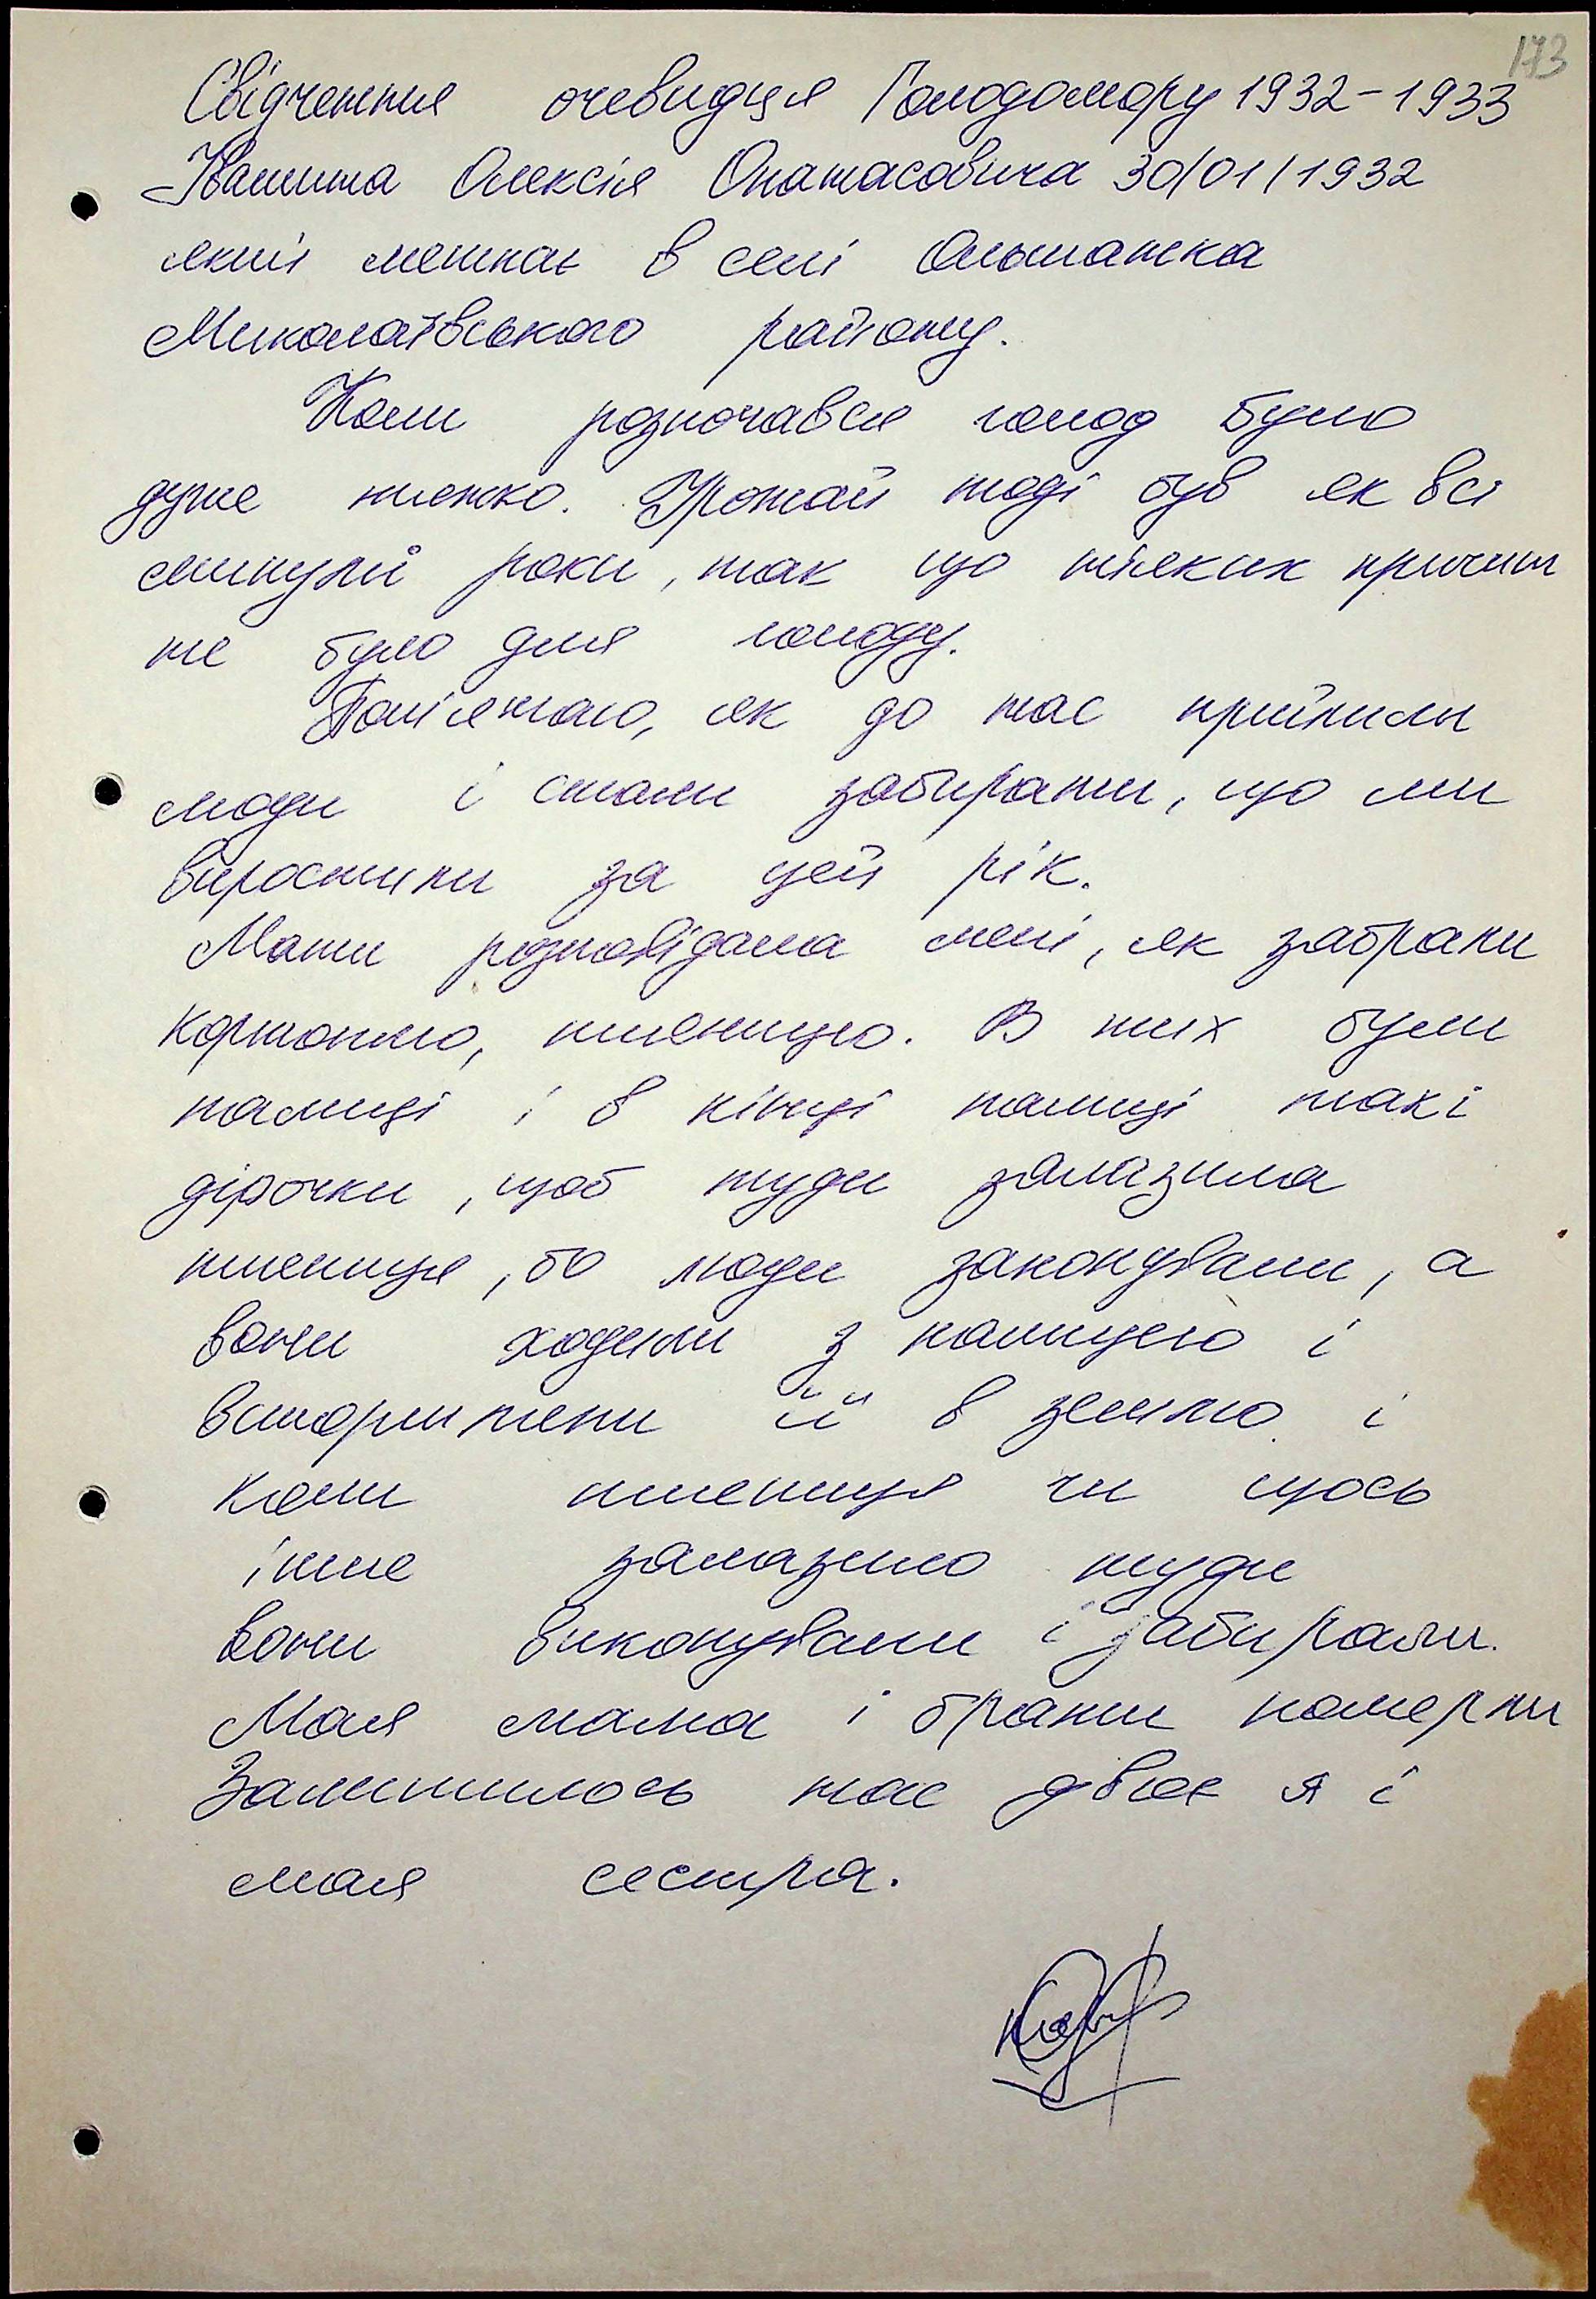 173
Свідчення очевидця Голодомору 1932-1933
Іванина Олексія Опанасовича 30/01/1932
який мешкає в селі Ольшанка
Миколаївського району.
Коли розпочався голод було
дуже тяжко. Урожай тоді був як всі
минулі роки, так що ніяких причин
не було для голоду.
Пам'ятаю, як до нас прийшли
люди і стали забирати, що ми
виростили за цей рік.
Мати розповідала мені, як забрали
картоплю, пшеницю. В них були
палиці і в кінці палиці такі
дірочки, щоб туди залазила
пшениця, бо люди закопували, а
вони ходили з палицею і
встормляли її в землю і
коли пшениця чи щось
інше залазило туди
вони викопували і забирали.
Моя мама і брати померли
Залишилось нас двоє я і
моя сестра.